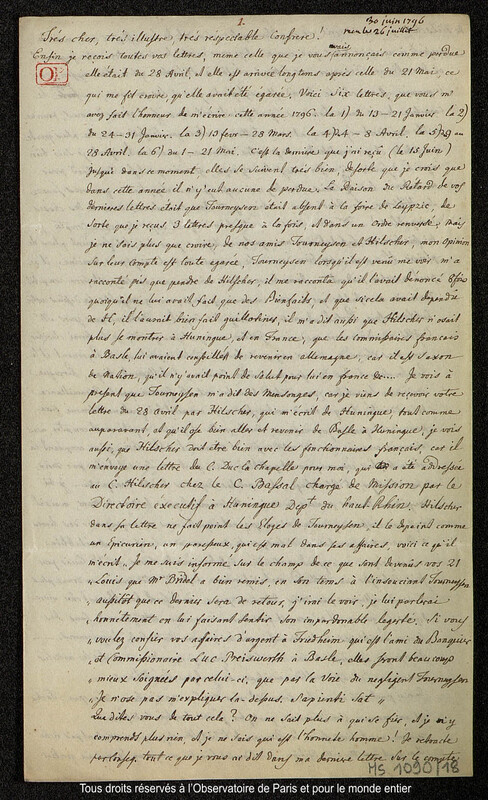 1.
30 juin 1796
Très cher, très illustre, très respectable Confrere!
Enfin je reçois toutes vos lettres, meme celle que je vous avais annoncais comme perdue
elle était du 28 Avril, et elle est arrivée longtems après celle du 21 Mai, ce
qui me fit croire, qu'elle avait été égarée. Voici Six lettres, que vous m'
avez fait l'honneur de m'écrire cette année 1796. la 1) du 13-21 Janvier. la 2)
du 24-31 Janvier. la 3) 13 fevr-28 Mars. la 4) 4-8 Avril. la 5) 28 au
28 Avril. la 6) du 1-21 Mai. C'est la derniere que j'ai reçu (le 15 Juin)
Jusque dans ce moment, elles se suivent très bien, desorte que je crois que
dans cette année il n'y eut aucune de perdue. La Raison du Retard de vos
dernieres lettres était que Tourneysen était absent à la foire de Leipzic, de
Sorte que je reçus 3 lettres presque à la fois, et dans un ordre renversé. Mais
je ne sais plus que croire, de nos amis Tourneysen et Hilscher, mon opinion
sur leur compte est toute egarée, Tourneysen lorsqu'il est venu me voir m'a
raconté pis que pendre de Hilscher, il me raconta qu'il l'avait dénoncé 8 fois
quoiqu'il ne lui avait fait que des Bienfaits, et que si cela avait dependu
de H, il l'aurait bien fait guillotiner, il m'a dit aussi que Hilscher n'osait
plus se montrer à Huningue, et en France; que les commissaires français
à Basle, lui avaient conseillés de revenir en allemagne, car il est Saxon
de Nation, qu'il n'y avait point de Salut pour lui en france &c.... Je vois à
present que Tourneysen m'a dit des Mensonges, car je viens de recevoir votre
lettre du 28 avril par Hilscher, qui m'ecrit de Huningue, tout comme
auparavant, et qu'il ose bien aller et revenir de Basle à Huningue, je vois
aussi, que Hilscher doit être bien avec les fonctionnaires français, car il
m'envoye une lettre du C. Duc la chapelle pour moi, qui a été adressée
au C. Hilscher chez le C. Bassal chargé de Mission par le
Directoire executif à Huningue Dept du haut Rhin. Hilscher
dans sa lettre ne fait point les Eloges de Tourneysen, il le depeint comme
un Epicurien, un paresseux, qui est mal dans ses affaires, voici ce qu'il
m'ecrit. Je me suis informé sur le champ de ce que sont devenus vos 21
„Louis que Mr Bridel a bien remis, en son tems à l'insouciant Tourneysen
„aussitôt que ce dernier sera de retour, j'irai le voir, je lui parlerai
„honnetement en lui faisant sentir son impardonable legerté. Si vous
„voulez confier vos afaires d'argent à Friedheim qui est l'ami du Banquier
„et Commissionaire Luc Preiswerck à Basle, elles seront beaucoup
„mieux Soignées par celui-ci, que par la Voie du negligent Tourneysen
„Je n'ose pas m'expliquer la-dessus. Sapienti Sat"
Que dites vous de tout cela? On ne sait plus à qui se fier. et je n'y
comprends plus rien, et je ne sais qui est l'honnete homme! Je retracte
par conseq. tout ce que je vous ai dit dans ma derniere lettre sur le compte
MS 1090/18
Tous droits réservés à l'Observatoire de Paris et pour le monde entier